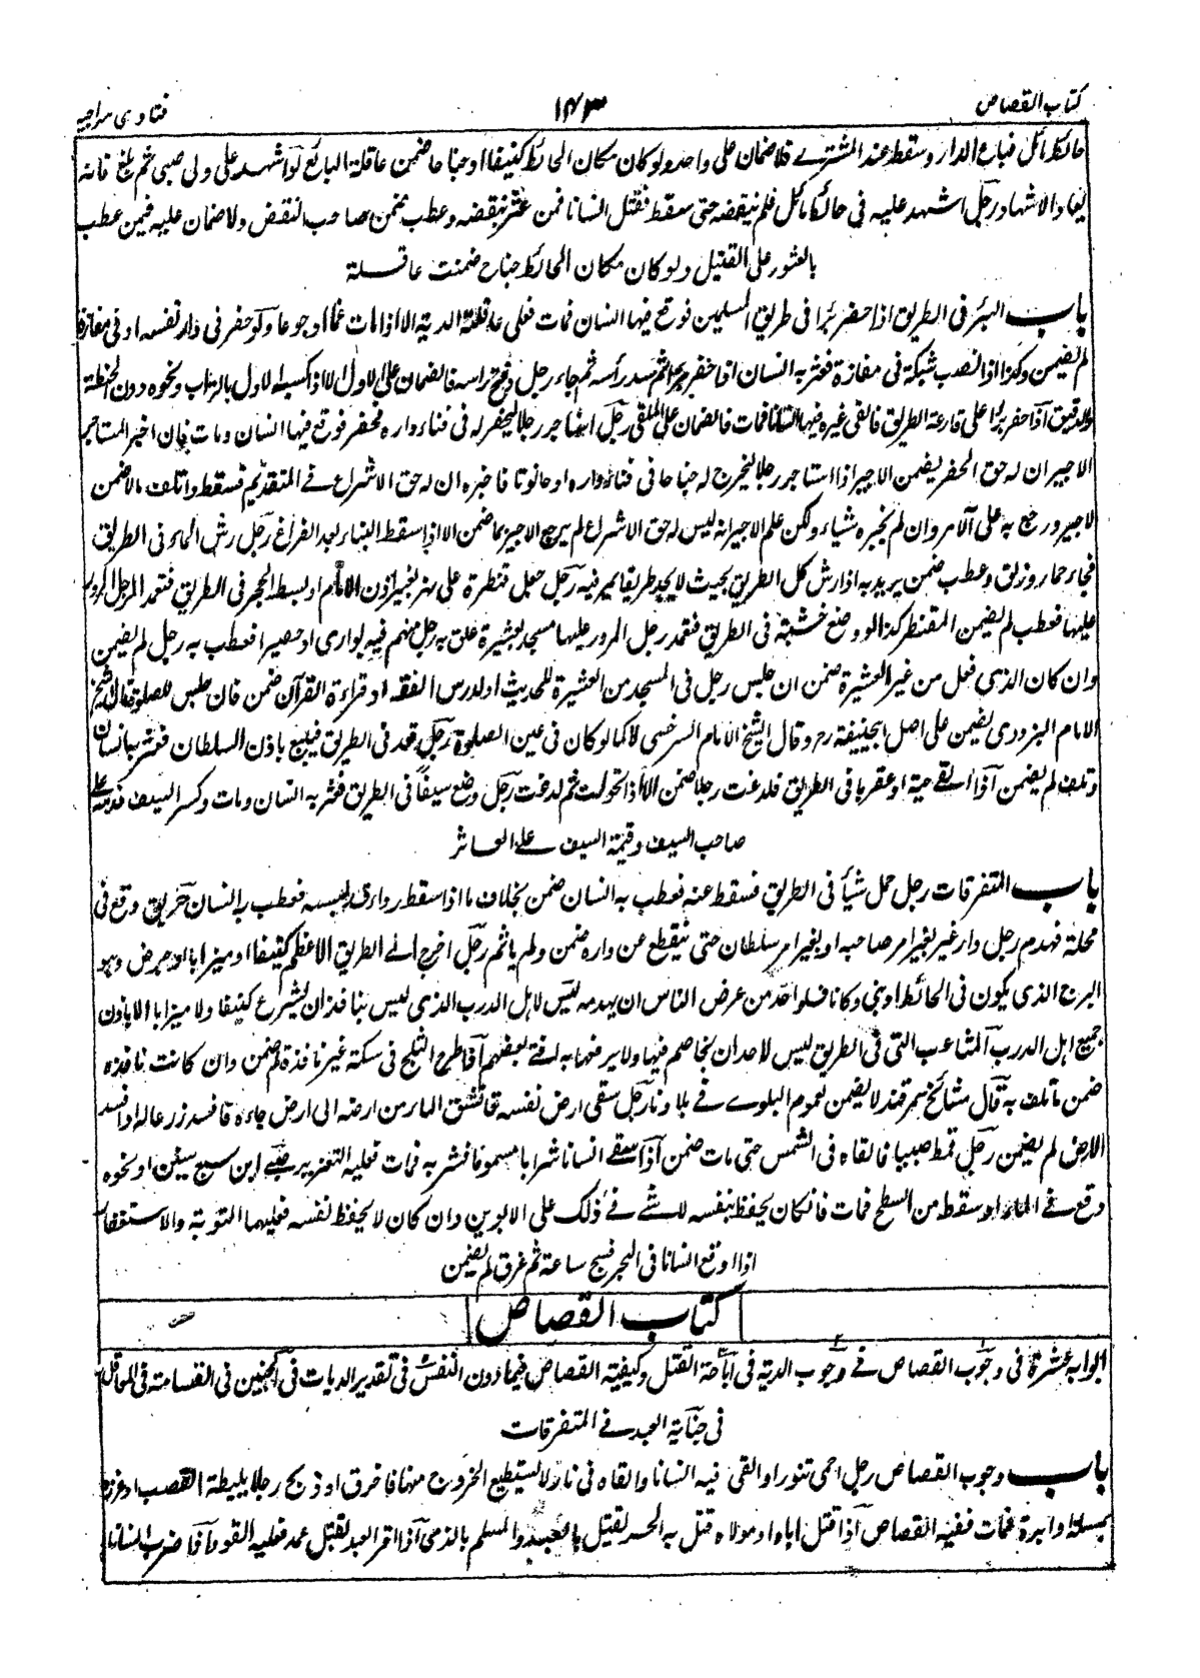 كتاب القصاص
١٤٣
فتاوى سراجيه
حائط مائل فباع الدار وسقط عند المشتري فلا ضمان على واحد ولو كان مكان الحائط كنيفا او جناحا ضمن عاقلة البائع لو اشهد على ولى صبى ثم بلغ فانه
يعاد الاشهاد رجل اشهد عليه فى حائط مائل فلم ينقضه حتى سقط فقتل انسانا فمن عثر بنقضه وعطب يضمن صاحب النقض ولا ضمان عليه فيمن عطب
بالعثور على القتيل ولو كان مكان الحائط جناح ضمنت عاقلة
باب البئر فى الطريق اذا حفر بئرا فى طريق المسلمين فوقع فيها انسان فمات فعلى عاقلته الدية الا اذا مات غما او جوعا ولو حفر فى دار نفسه او فى مفازة
لم يضمن وكذا اذا نصب شبكة فى مفازة فعثر به انسان اذا حفر بئرا ثم سد رأسه ثم جاء رجل وفتح رأسه فالضمان على الاول الا اذا كبسه الاول بالتراب ونحوه دون الحنطة
والدقيق اذا حفر بئرا على قارعة الطريق فالقى غيره فيها انسانا فمات فالضمان على الملقى رجل استاجر رجلا ليحفر له فى فناء داره فحفر فوقع فيها انسان ومات فان اخبر المستاجر
الاجير ان له حق الحفر يضمن الاجير اذا استاجر رجلا ليخرج له جناحا فى فناء داره او حانوتا فاخبره ان له حق الاشراع فى المتقدم فسقط واتلف مالا ضمن
الاجير ورجع به على الآمر وان لم يخبره شياء ولكن علم الاجير انه ليس له حق الاشراع لم يرجع الاجير بما ضمن الا اذا سقط البناء بعد الفراغ رجل رش الماء فى الطريق
فجاء حمار وزلق وعطب ضمن يريد به اذا رش كل الطريق بحيث لا يجد طريقا يمر فيه رجل جعل قنطرة على نهر بغير اذن الامام او بسط الحجر فى الطريق فتعمد الرجل المرور
عليها فعطب لم يضمن المقنطر كذا لو وضع خشبة فى الطريق فتعمد رجل المرور عليها مسجد لعشيرة علق به رجل منهم فيه بوارى او حصيرا فعطب به رجل لم يضمن
وان كان الذى فعل من غير العشيرة ضمن ان جلس رجل فى المسجد من العشيرة للحديث او لدرس الفقه او قراءة القرآن ضمن فان جلس للصلوة قال الشيخ
الامام البزدوى يضمن على اصل ابيحنيفة رح وقال الشيخ الامام السرخسى لا كما لو كان فى عين الصلوة رجل قعد فى الطريق فيبيع باذن السلطان فعثر به انسان
وتلف لم يضمن اذا القى حية او عقربا فى الطريق فلدغت رجلا ضمن الا اذا تحولت ثم لدغت رجل وضع سيفا فى الطريق فعثر به انسان ومات وكسر السيف فديته على
صاحب السيف وقيمة السيف على العاثر
باب المتفرقات رجل حمل شيأ فى الطريق فسقط عنه فعطب به انسان ضمن بخلاف ما اذا سقط رداءه لبسه فعطب به انسان حريق وقع فى
محلة فهدم رجل دار غير بغير امر صاحبه او بغير امر سلطان حتى ينقطع عن داره ضمن ولم يأثم رجل اخرج الى الطريق الاعظم كنيفا او ميزابا او جرض وهو
البرج الذى يكون فى الحائط او بنى دكانا فلواحد من عرض الناس ان يهدمه ليس لاهل الدرب الذى ليس بنافذ ان يشرع كنيفا ولا ميزابا الا باذن
جميع اهل الدرب المثاعب التى فى الطريق ليس لاحد ان يخاصم فيها ولا يرفعها به لفتے بعضهم اذا طرح الثلج فى سكة غير نافذة لم يضمن وان كانت نافذه
ضمن ما تلف به قال مشائخ سمرقند لا يضمن لعموم البلوے فى بلادنا رجل سقى ارض نفسه فانشق الماء من ارضه الى ارض جاره فافسد زرعا له او افسد
الارض لم يضمن رجل قمط صبيا فالقاه فى الشمس حتى مات ضمن اذا سقے انسانا شرابا مسموما فشربه فمات فعليه التعزير صبے ابن سبع سنين او نحوه
وقع فى الماء او سقط من السطح فمات فان كان يحفظ بنفسه لا شے فى ذلك على الابوين وان كان لا يحفظ نفسه فعليهما التوبة والاستغفار
اذا اوقع انسانا فى البحر فسبح ساعة ثم غرق لم يضمن
كتاب القصاص
ابوابه عشرة فى وجوب القصاص فى وجوب الدية فى اباحة القتل وكيفية القصاص فيما دون النفس فى تقدير الديات فى الجنين فى القسامة فى المعاقل
فى جناية العبد فى المتفرقات
باب وجوب القصاص رجل احمى تنورا والقى فيه انسانا والقاه فى نار لا يستطيع الخروج منها فاحرق او ذبح رجلا بليطة القصب او غرزه
بمسلة او ابرة فمات ففيه القصاص اذا قتل اباه او مولاه قتل به الحر لقتيل بالعبد والمسلم بالذمى اذا اقر العبد لقتل عمد فعليه القود اذا ضرب انسانا